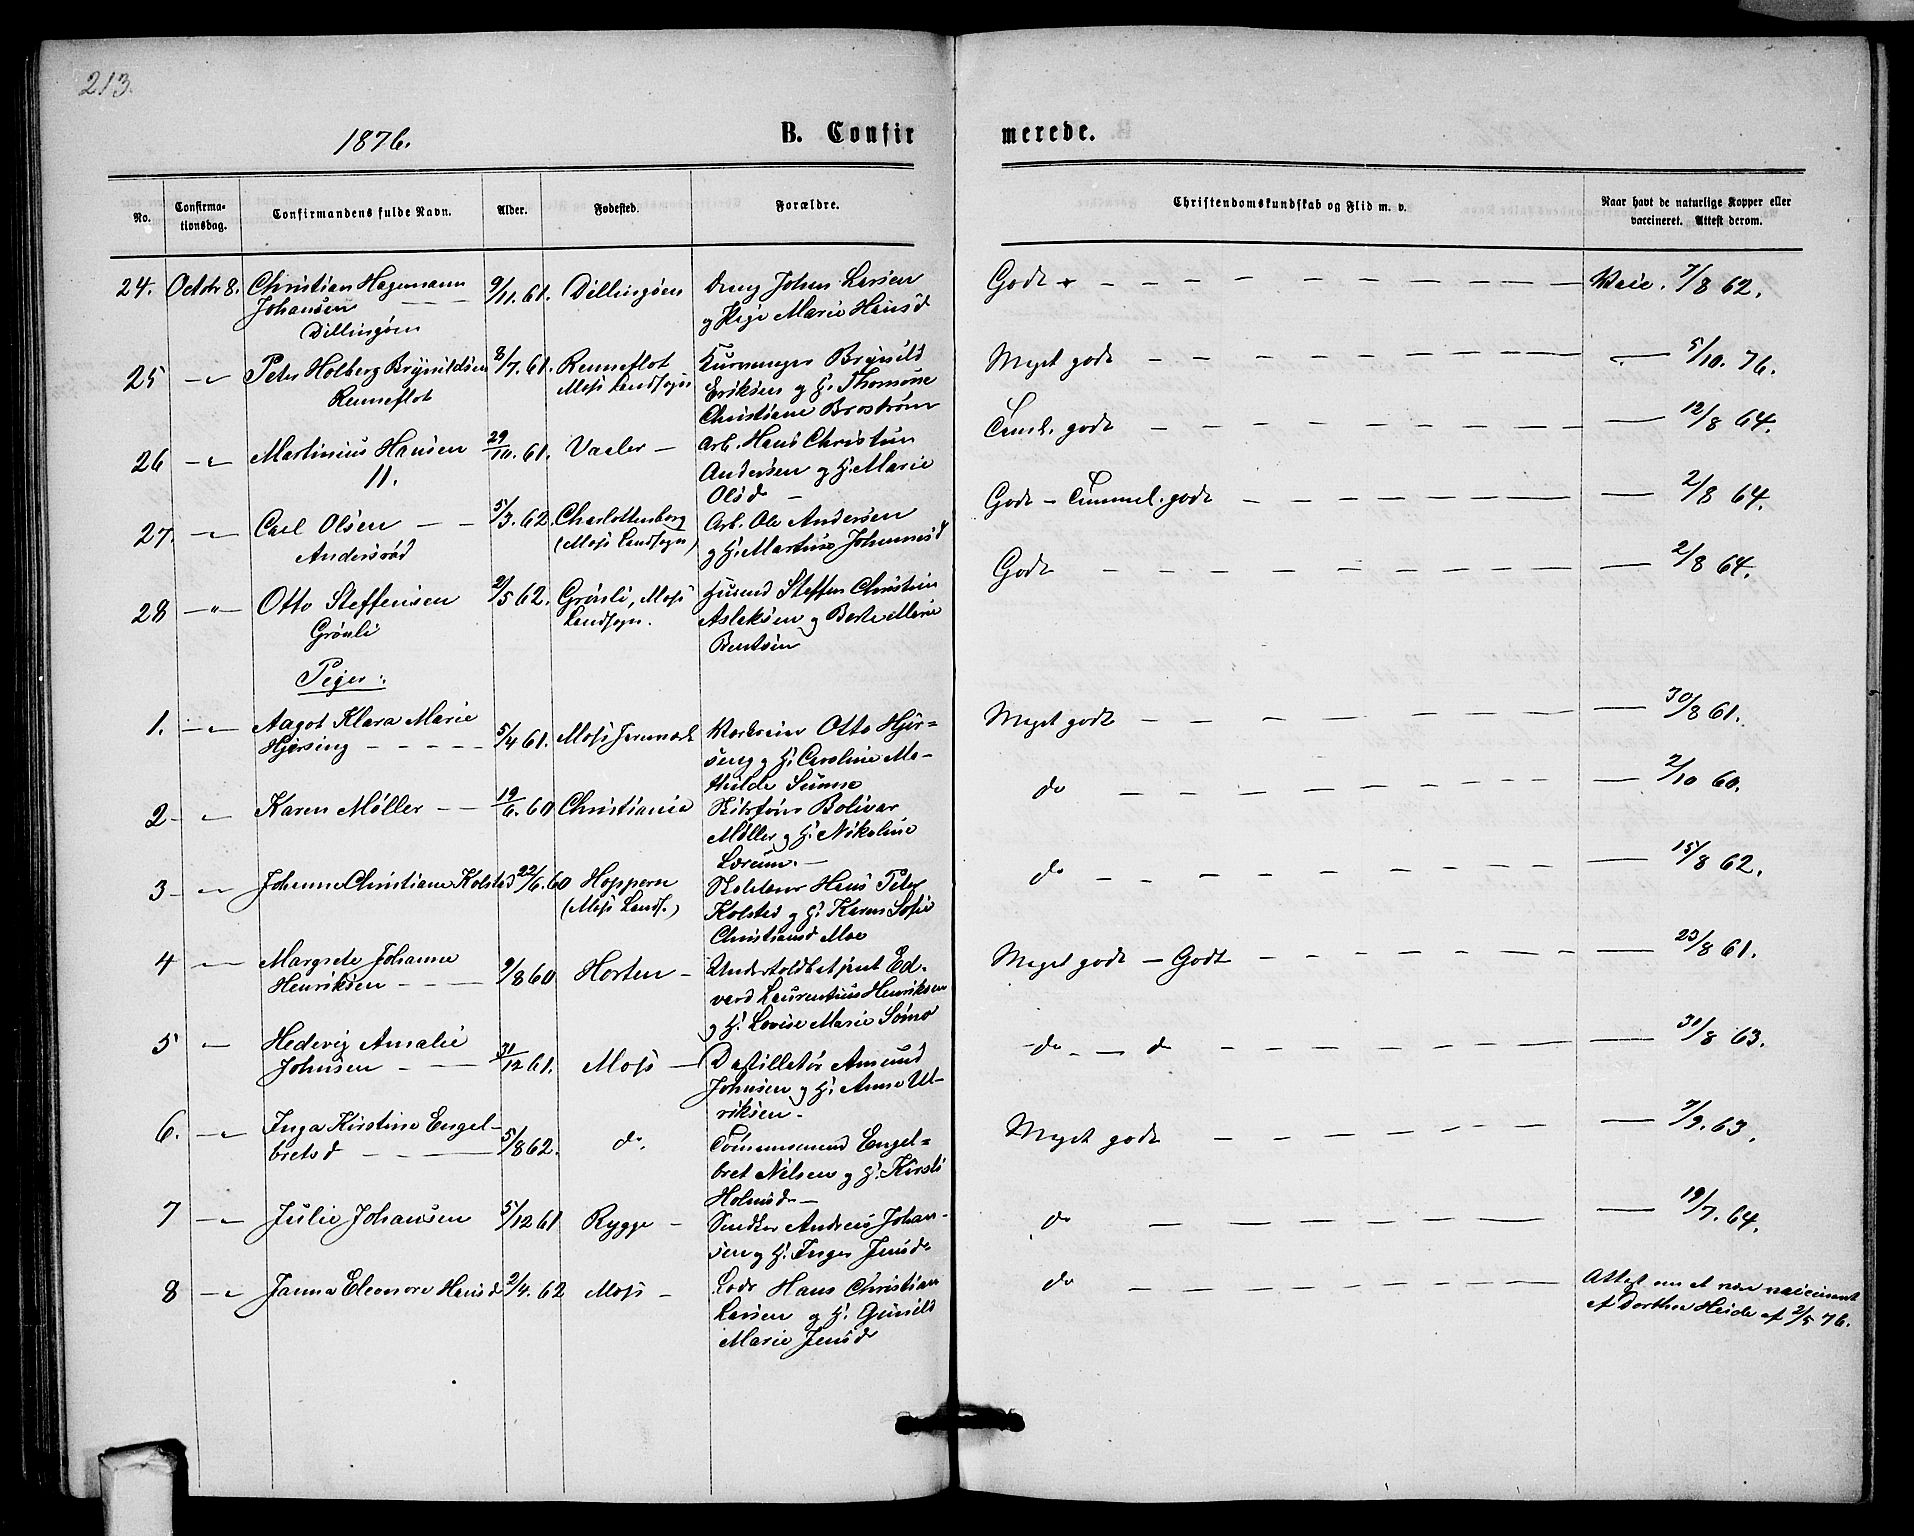 213.
1876.
B. Confir
merede.
No.
Confirma-
tionsdag.
Confirmandens fulde Navn.
Alder.
Fødested.
Forældre.
Christendomskundskab og Flid m. v.
Naar havt de naturlige Kopper eller
vaccineret. Attest derom.
24. Octbr 8. Christian Hagemann 9/11. 61. Dillingøen Johan Larsen Godt Vacc. 7/8 62.
Johansen og Pige Marie Hansd
Dillingøen
25 -"- Peter Holberg Brynildsen 8/7. 61. Renneflot Kurvmager Brynild Meget godt 5/10. 76.
Renneflot Moss Landsogn Eriksen og H. Thomine
Christiane Brostrøm
26 -"- Martinius Hansen 29/10. 61. Vaaler Arb. Hans Christian Teml. godt 12/8 64.
11. Andersen og H. Marie
Olsd
27 -"- Carl Olsen 5/3. 62. Charlottenborg Arb. Ole Andersen Godt - Temmel. godt 2/8 64.
Andersrød (Moss Landsogn) og H. Martine Johannesd
28 -"- Otto Steffensen 2/5 62. Grønli, Moss Husmd Steffen Christian Godt 2/8 64.
Grønli Landsogn. Aslaksen og Berte Marie
Bentsen
Piger:
1. -"- Aagot Klara Marie Otto Hjør= Meget godt 30/8 61.
Hjørsing 5/4 61. Moss Jernværk sing og H. Caroline Ma-
thilde Sunne
2 -"- Karen Møller 19/6. 60 Christiania Skibsfører Bolivar do 2/10 60.
Møller og H. Nikoline
3 -"- Johanne Christiane Kolstad 22/6. 60 Hoppern Hans Peter do 15/8 62.
(Moss Lands.) Kolstad og H. Karen Sofie
Christiansd Moe
4 -"- Margrete Johanne Undertoldbetjent Ed- Meget godt - Godt 23/8 61.
Henriksen 9/8 60 Horten vard Laurentius Henriksen
og H. Lovise Marie
5 -"- Hedevig Amalie Destillatør Amund do - do 31/8 63.
Johnsen 31/12 61. Moss Johnsen og H. Anne Ul-
riksen
6. -"- Inga Kirstine Engel- Tømmermand Engel= Meget godt 7/9. 63.
bretsd 5/8 62. do. bret Nilsen og H. Kirsti
Holmsd
7 -"- Julie Johansen 5/12 61 Rygge Snedker Andreas Johan- do 19/7. 64.
sen og H. Inger Jensd
8 -"- Janna Eleonore Hansd 2/4. 62 Moss Lods Hans Christian do Attest om at være vaccineret
Larsen og H. Gunild af Dorthea Heide af 2/5 76.
Marie Jensd